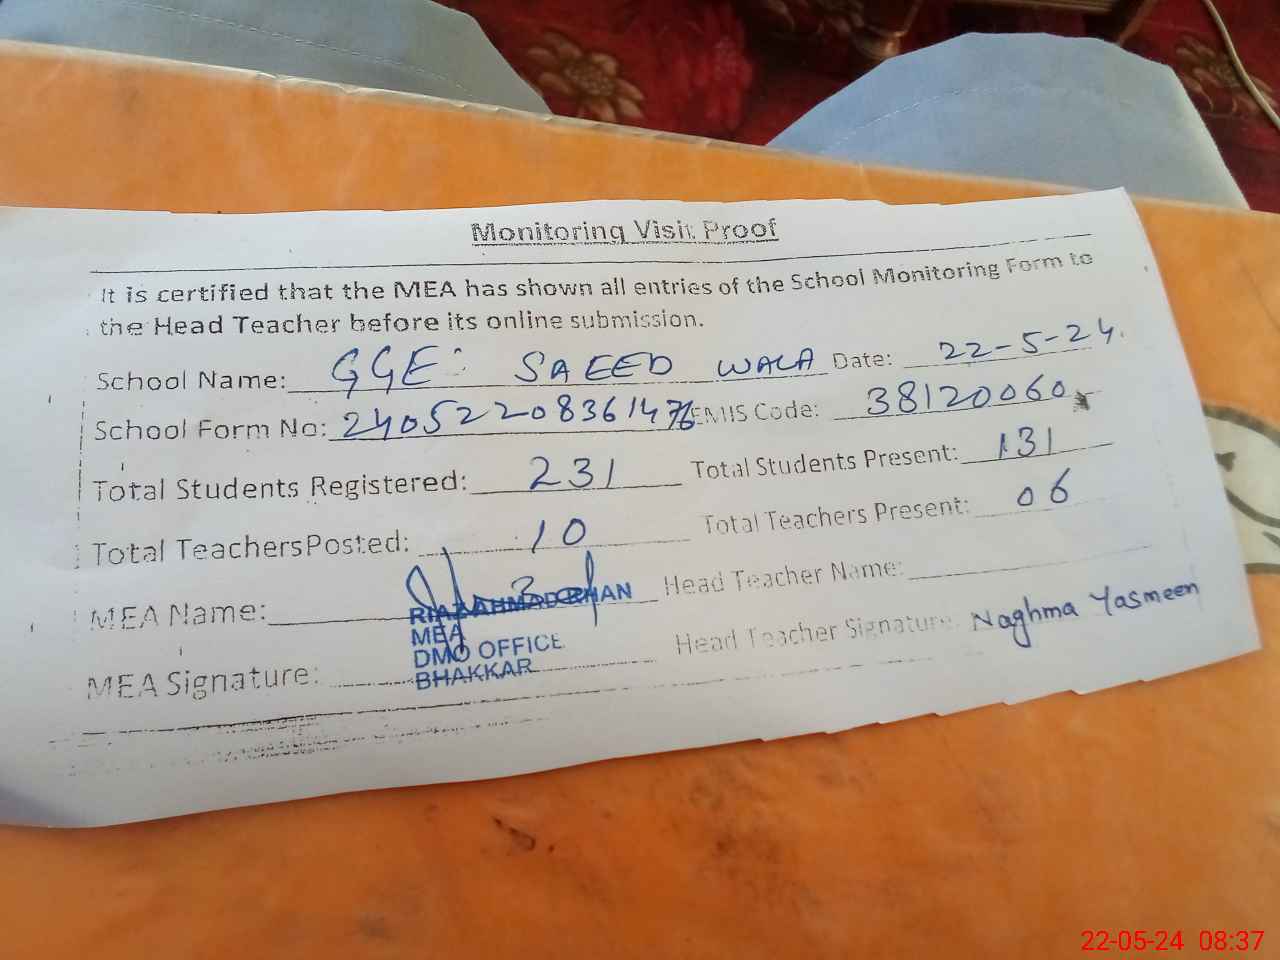 Monitoring Visit Proof
It is certified that the MEA has shown all entries of the School Monitoring Form to
the Head Teacher before its online submission.
School Name: GGE: SAEED WALA Date: 22-5-24.
School Form No: 2405220836147 EMIS Code: 38120060
Total Students Registered: 231 Total Students Present: 131
Total Teachers Posted: 10 Total Teachers Present: 06
MEA Name: Head Teacher Name:
RIAZ AHMAD KHAN
MEA
DMO OFFICE
BHAKKAR
MEA Signature: Head Teacher Signature: Naghma Yasmeen
22-05-24 08:37